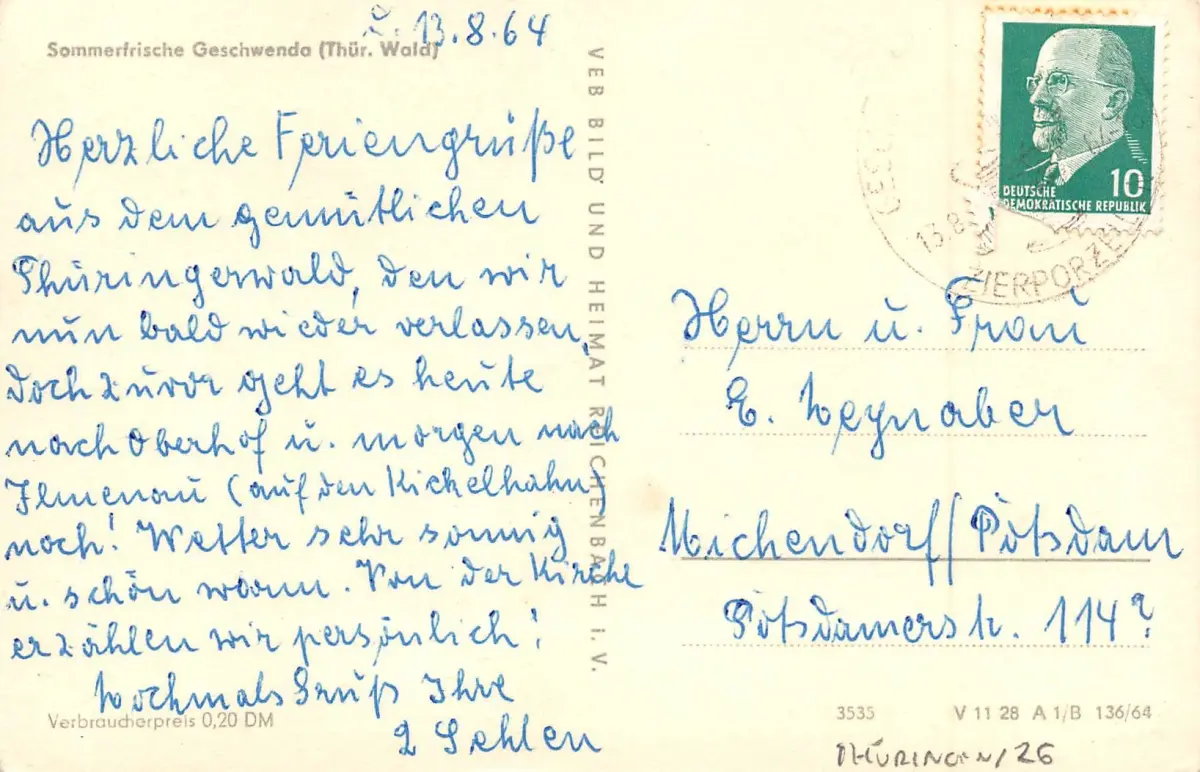 13.8.64
Sommerfrische Geschwenda (Thür. Wald)
Herzliche Feriengrüße
aus dem gemütlichen
Thüringerwald, den wir
nun bald wieder verlassen,
doch zuvor geht es heute
nach Oberhof u. morgen nach
Ilmenau (auf den Kickelhahn)
noch! Wetter sehr sonnig
u. schön warm. Von der Kirche
erzählen wir persönlich!
Nochmals Gruß Ihre
2 Sehlen
Verbraucherpreis 0,20 DM
VEB BILD UND HEIMAT REICHENBACH I. V.
10
DEUTSCHE
DEMOKRATISCHE REPUBLIK
13.8.
ZIERPORZE
Herrn u. Frau
E. Neynaber
Michendorf/Potsdam
Potsdamerstr. 114?
3535 V 11 28 A 1/B 136/64
THÜRINGEN/26